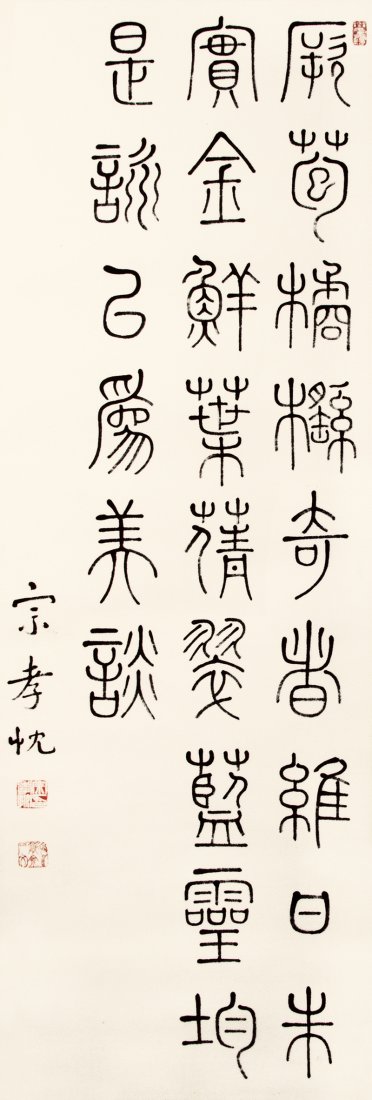 厥苞橘櫾奇者維甘朱
實金鮮葉蒨翠藍靈均
是詠㠯爲美談
宗孝忱